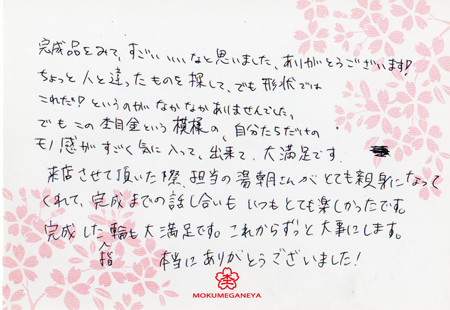 完成品をみて、すごいいいなと思いました、ありがとうございます!
ちょっと人と違ったものを探して、でも形状では
これだ!というのがなかなかありませんでした。
でもこの木目金という模様の、自分たちだけの
モノ感がすごく気に入って、出来て、大満足です。
来店させて頂いた際、担当の湯朝さんがとても親身になって
くれて、完成までの話し合いもいつもとても楽しかったです。
完成した指輪も大満足です。これからずっと大事にします。
本当にありがとうございました!
MOKUMEGANEYA